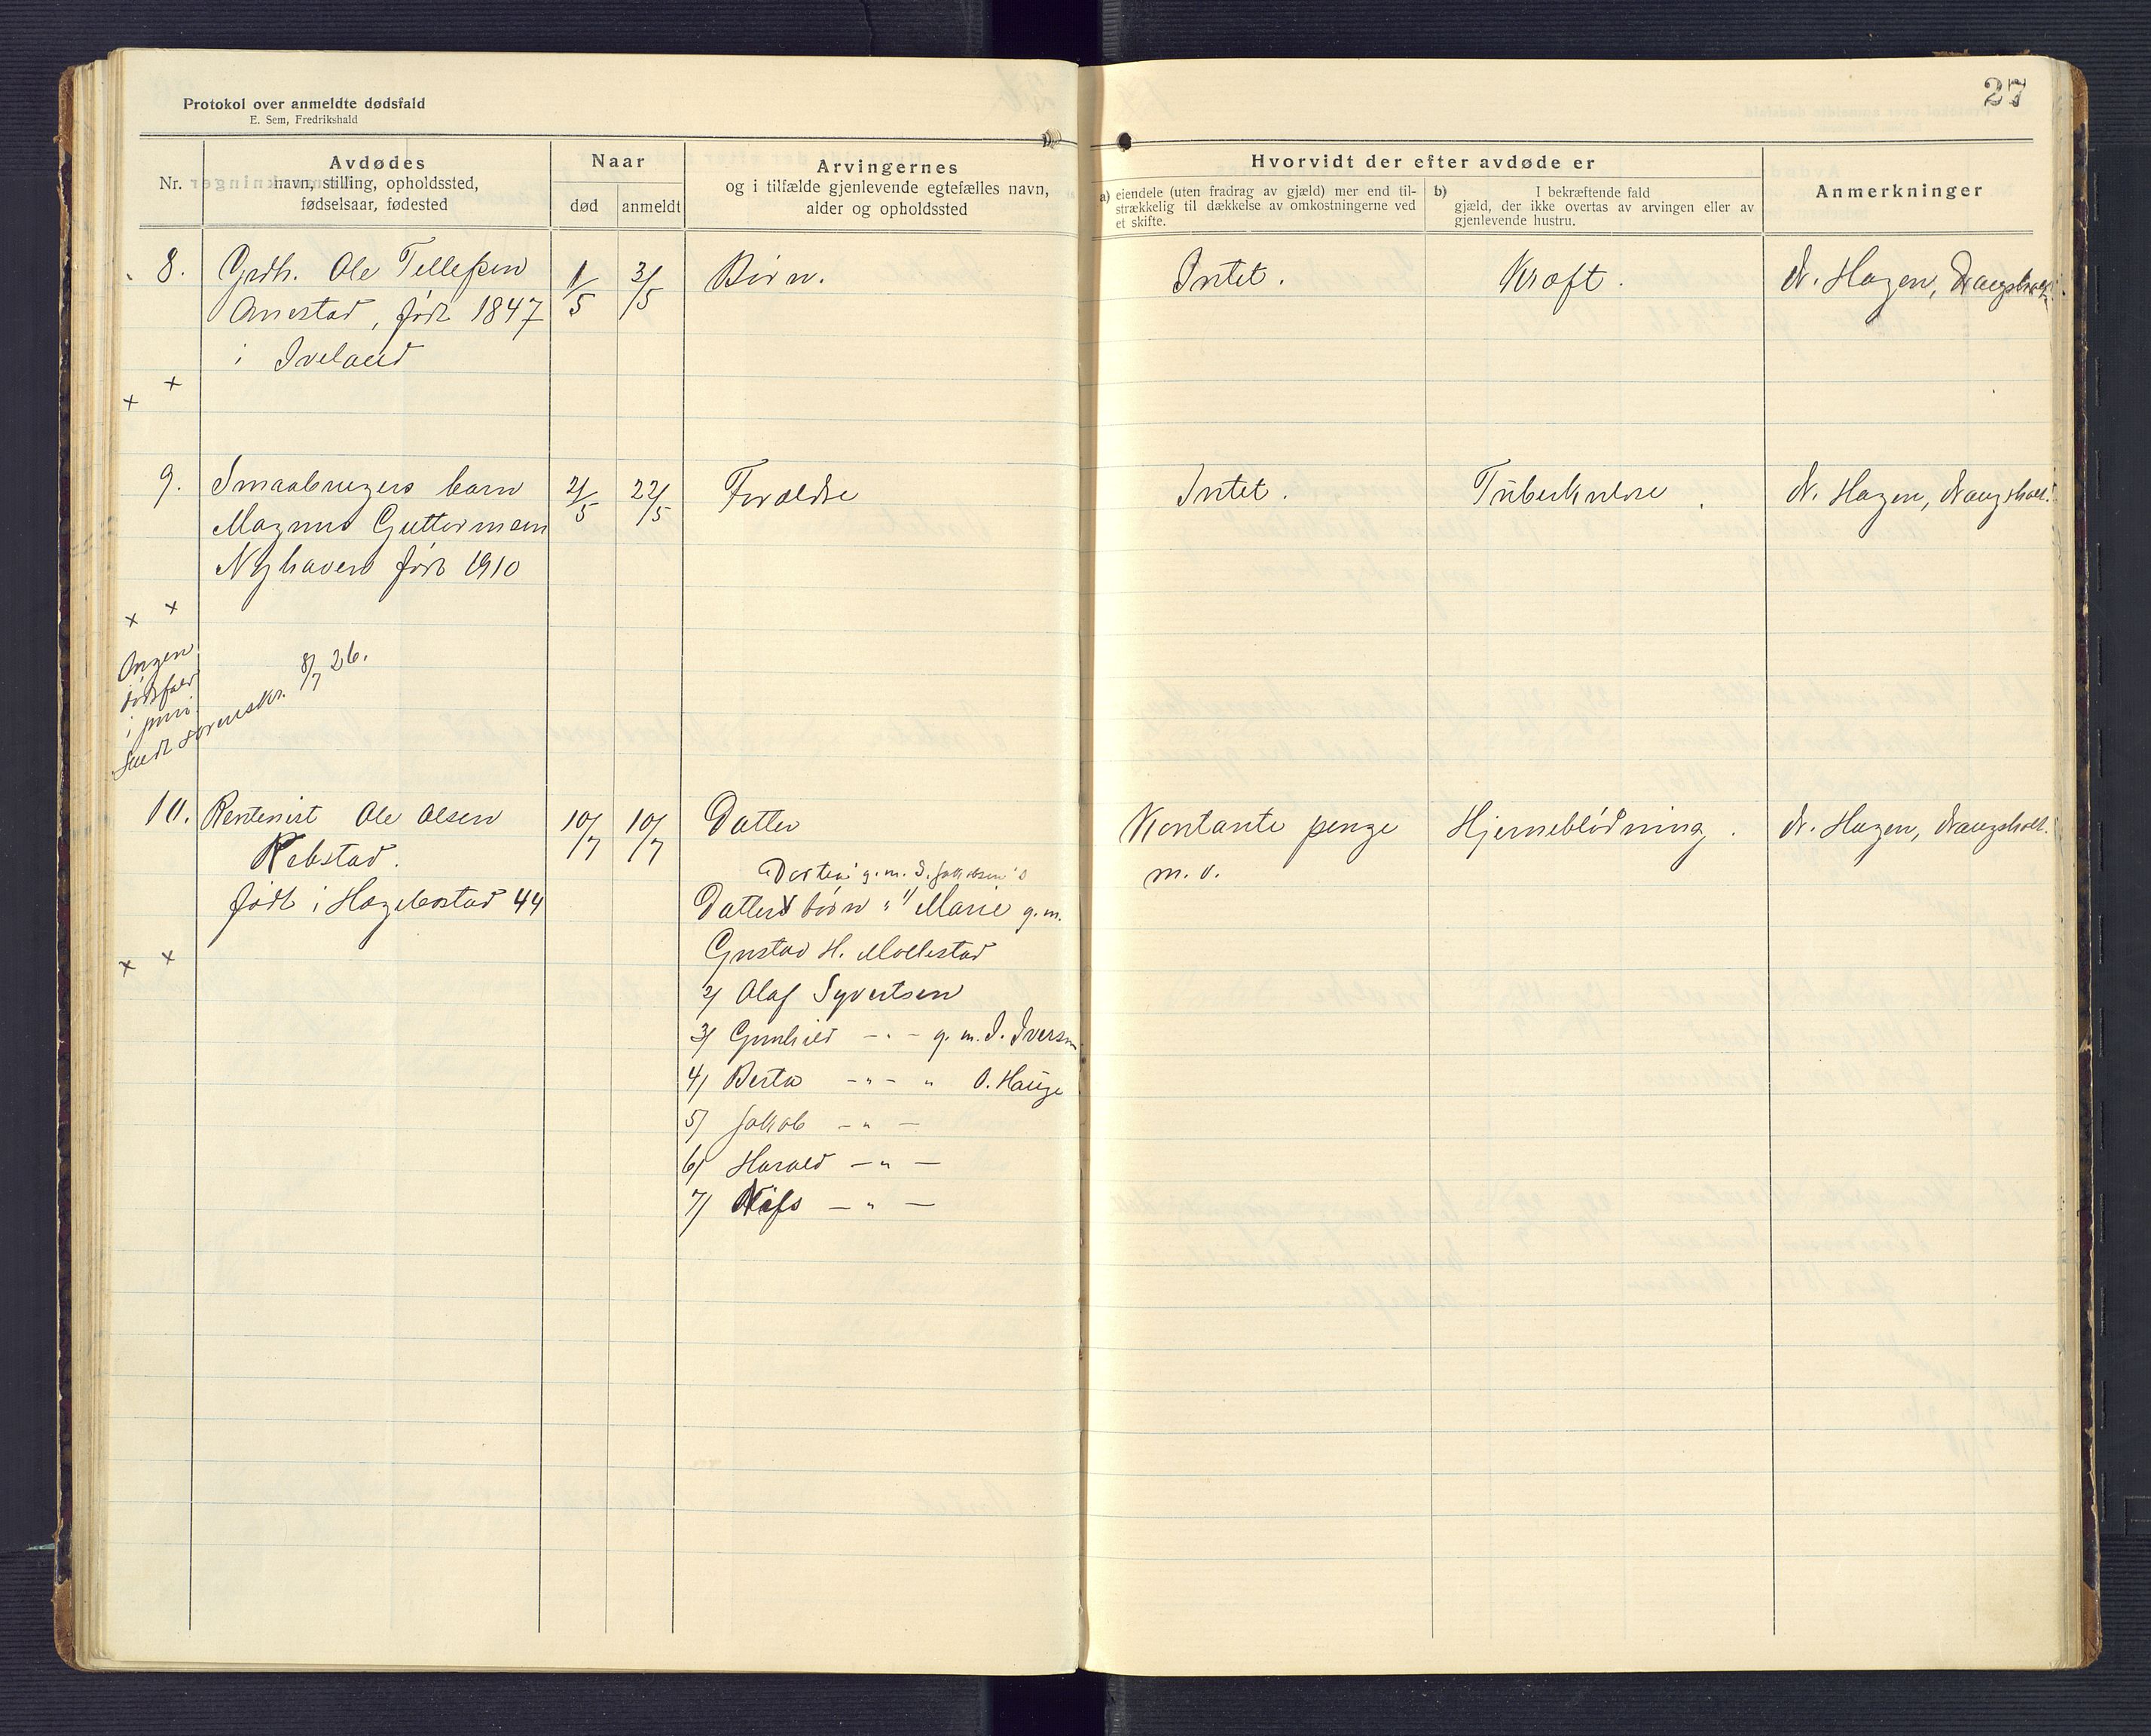 27
Protokol over anmeldte dødsfald
E. Sem, Fredrikshald
Nr.
Avdødes
navn, stilling, opholdssted,
fødselsaar, fødested
Naar
død
anmeldt
Arvingernes
og i tilfælde gjenlevende egtefælles navn,
alder og opholdssted
Hvorvidt der efter avdøde er
a) eiendele (uten fradrag av gjæld) mer end til-
strækkelig til dækkelse av omkostningerne ved
et skifte.
b) I bekræftende fald
gjæld, der ikke overtas av arvingen eller av
gjenlevende hustru.
Anmerkninger
8. Grdb. Ole Tellefsen 1/5 3/5 Børn. Intet. Kræft. Dr. Hagen, Drangsholt.
Omestad, født 1847
i Iveland
+ +
9. Smaabrugers barn 2/5 22/5 Forældre Intet. Tuberkulose. Dr. Hagen, Drangsholt.
Magnus Guttormsen
Nyhaven født 1910
+ +
Ingen
dødsfald
i juni
Sendt sorenskr. 8/7 26.
10. Rentenist Ole Olsen 10/7 10/7 Datter Kontante penge Hjerneblødning. Dr. Hagen, Drangsholt.
Rebstad.
"Dortea" g. m. S. Jakobsen
m. v.
født i Hægebostad 44
Datters børn: 1/ Marie g. m.
+ +
Gustav H. Mollestad
2/ Olaf Syvertsen
3/ Gunhild -"- g. m. I. Iversen
4/ Berta -"- " O. Hauge
5/ Jakob -"-
6/ Harald -"-
7/ -"-